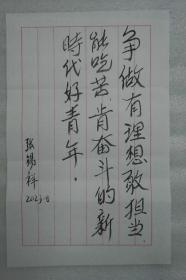 争做有理想敢担当、
能吃苦、肯奋斗的新
時代好青年。
张锡科
2023.8